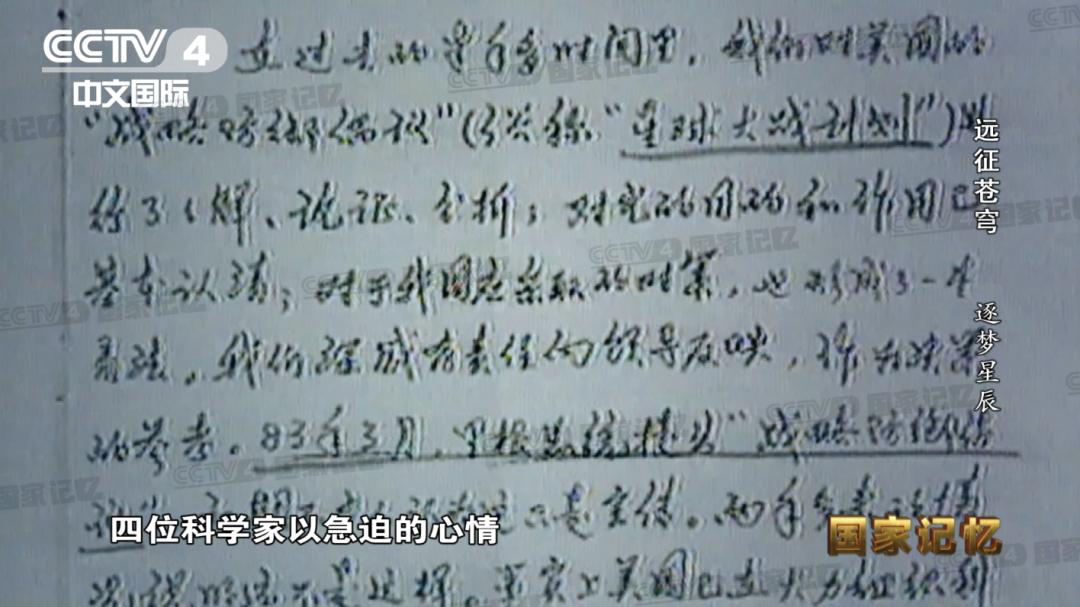 CCTV 4
中文国际
在过去的半年多时间里，我们对美国的
“战略防御倡议”（又称“星球大战计划”）进
行了了解、论证、分析；对它的目的和作用已
基本认清；对于我国应采取的对策，也形成了一些
看法。我们深感有责任向领导反映，作为决策
的参考。83年3月，里根总统提出“战略防御倡
议”
是宣传。两年
不是这样。事实上美国已在大力组织
四位科学家以急迫的心情
国家记忆
远征苍穹 逐梦星辰